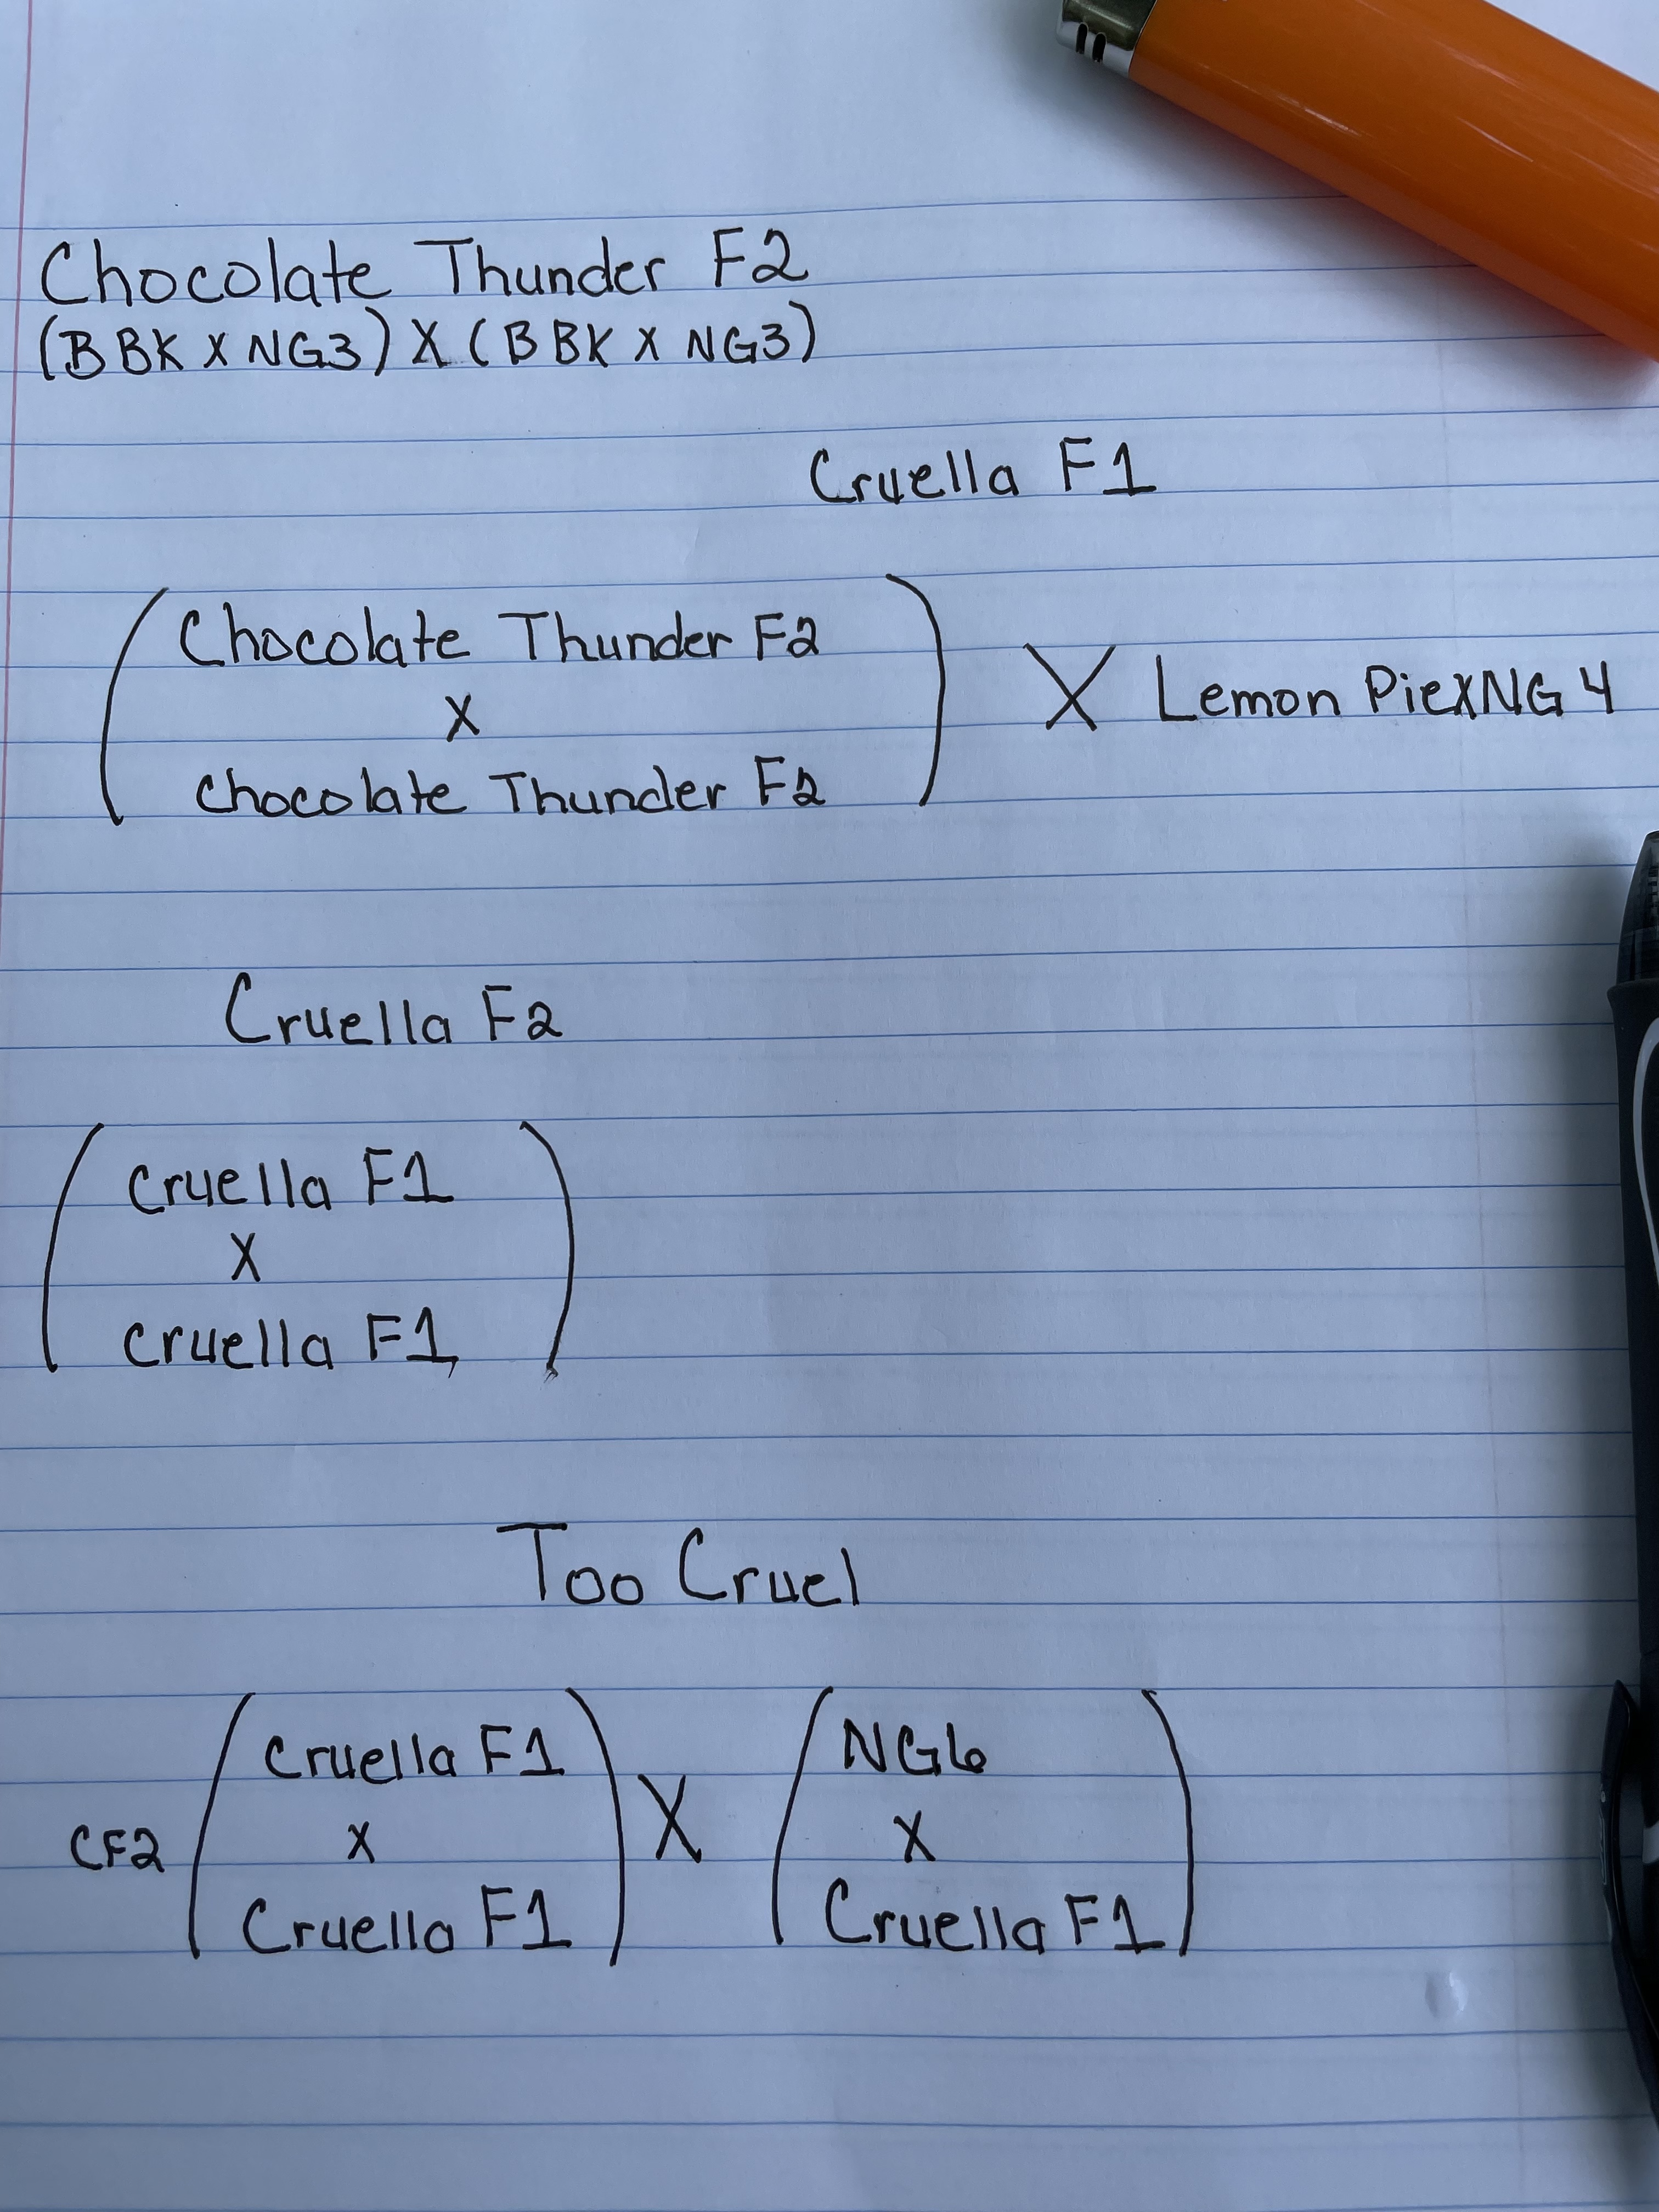 Chocolate Thunder F2
(BBK X NG3) X (BBK X NG3)
Cruella F1
Chocolate Thunder F2
X
Chocolate Thunder F2
X Lemon PieXNG4
Cruella F2
Cruella F1
X
Cruella F1
Too Cruel
CF2
Cruella F1
X
Cruella F1
X
NG6
X
Cruella F1